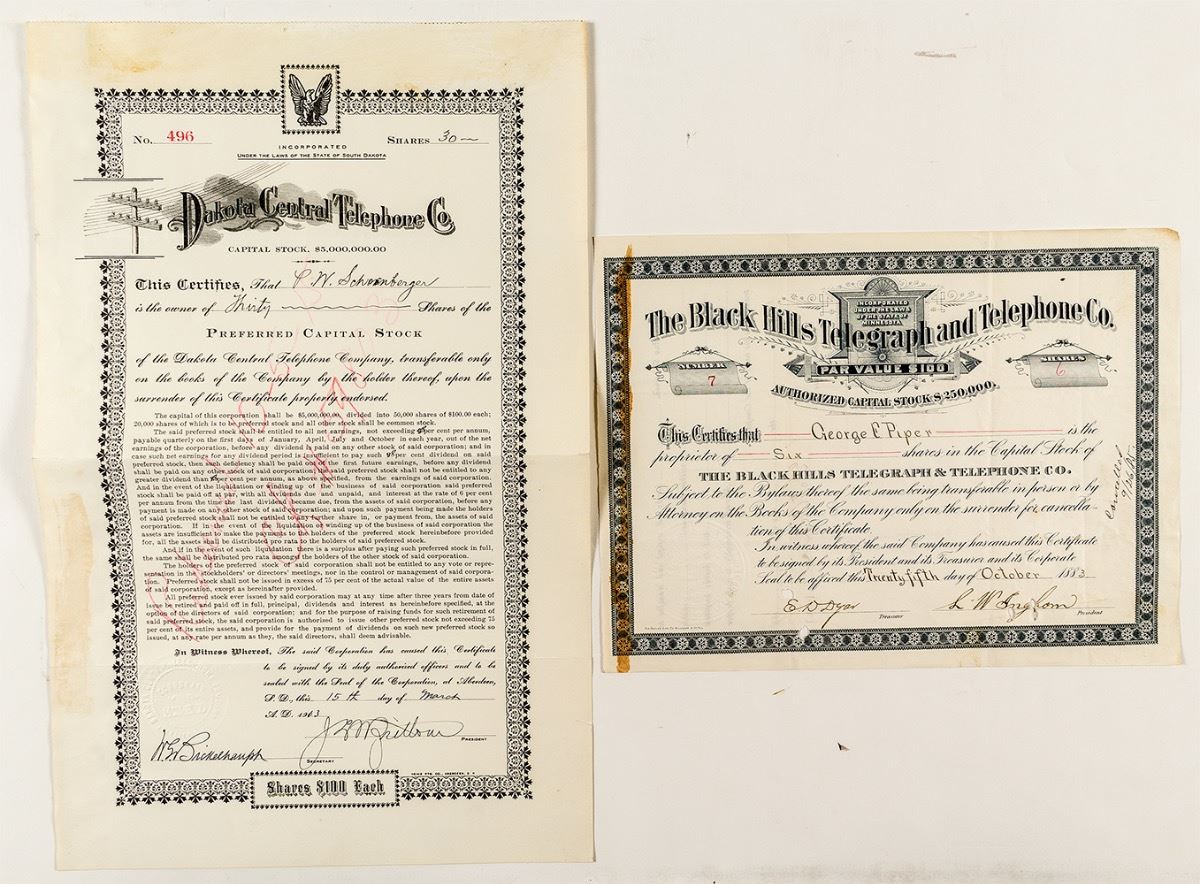 No. 496
SHARES 30
INCORPORATED
UNDER THE LAWS OF THE STATE OF SOUTH DAKOTA
Dakota Central Telephone Co.
CAPITAL STOCK, $5,000,000.00
This Certifies, That P. W. Schoenberger
is the owner of Thirty Shares of the
PREFERRED CAPITAL STOCK
of the Dakota Central Telephone Company, transferable only
on the books of the Company by the holder thereof, upon the
surrender of this Certificate properly endorsed.
The capital of this corporation shall be $5,000,000.00, divided into 50,000 shares of $100.00 each;
20,000 shares of which is to be preferred stock and all other stock shall be common stock.
The said preferred stock shall be entitled to all net earnings, not exceeding per cent per annum,
payable quarterly on the first days of January, April, July and October in each year, out of the net
earnings of the corporation, before any dividend is paid on any other stock of said corporation; and in
case such net earnings for any dividend period is insufficient to pay such per cent dividend on said
preferred stock, then such deficiency shall be paid out of the first future earnings, before any dividend
shall be paid on any other stock of said corporation. But said preferred stock shall not be entitled to any
greater dividend than per cent per annum, as above specified, from the earnings of said corporation.
And in the event of the liquidation or winding up of the business of said corporation said preferred
stock shall be paid off at par, with all dividends due and unpaid, and interest at the rate of 6 per cent
per annum from the time the last dividend became due, from the assets of said corporation, before any
payment is made on any other stock of said corporation; and upon such payment being made the holders
of said preferred stock shall not be entitled to any further share in, or payment from, the assets of said
corporation. If in the event of the liquidation or winding up of the business of said corporation the
assets are insufficient to make the payments to the holders of the preferred stock hereinbefore provided
for, all the assets shall be distributed pro rata to the holders of said preferred stock.
And if in the event of such liquidation there is a surplus after paying such preferred stock in full,
the same shall be distributed pro rata amongst the holders of the other stock of said corporation.
The holders of the preferred stock of said corporation shall not be entitled to any vote or repre-
sentation in the stockholders' or directors' meetings, nor in the control or management of said corpora-
tion. Preferred stock shall not be issued in excess of 75 per cent of the actual value of the entire assets
of said corporation, except as hereinafter provided.
All preferred stock ever issued by said corporation may at any time after three years from date of
issue be retired and paid off in full, principal, dividends and interest as hereinbefore specified, at the
option of the directors of said corporation; and for the purpose of raising funds for such retirement of
said preferred stock, the said corporation is authorized to issue other preferred stock not exceeding 75
per cent of its entire assets, and provide for the payment of dividends on such new preferred stock so
issued, at any rate per annum as they, the said directors, shall deem advisable.
In Witness Whereof, The said Corporation has caused this Certificate
to be signed by its duly authorized officers and to be
sealed with the Seal of the Corporation, at Aberdeen,
S. D., this 15th day of March
A. D. 1913
PRESIDENT
W G Bickelhaupt
SECRETARY
Shares $100 Each
The Black Hills Telegraph and Telephone Co.
INCORPORATED
UNDER THE LAWS
OF THE STATE OF
MINNESOTA
NUMBER
7
SHARES
6
PAR VALUE $100
AUTHORIZED CAPITAL STOCK $250,000.
This Certifies that George E Piper is the
proprietor of Six shares in the Capital Stock of
THE BLACK HILLS TELEGRAPH & TELEPHONE CO.
Subject to the Bylaws thereof the same being transferable in person or by
Attorney on the Books of the Company only on the surrender for cancella-
tion of this Certificate.
In witness whereof the said Company has caused this Certificate
to be signed by its President and its Treasurer and its Corporate
Seal to be affixed this Twenty fifth day of October 1883
E D Dyar
Treasurer
L W Ingham
President
Cancelled